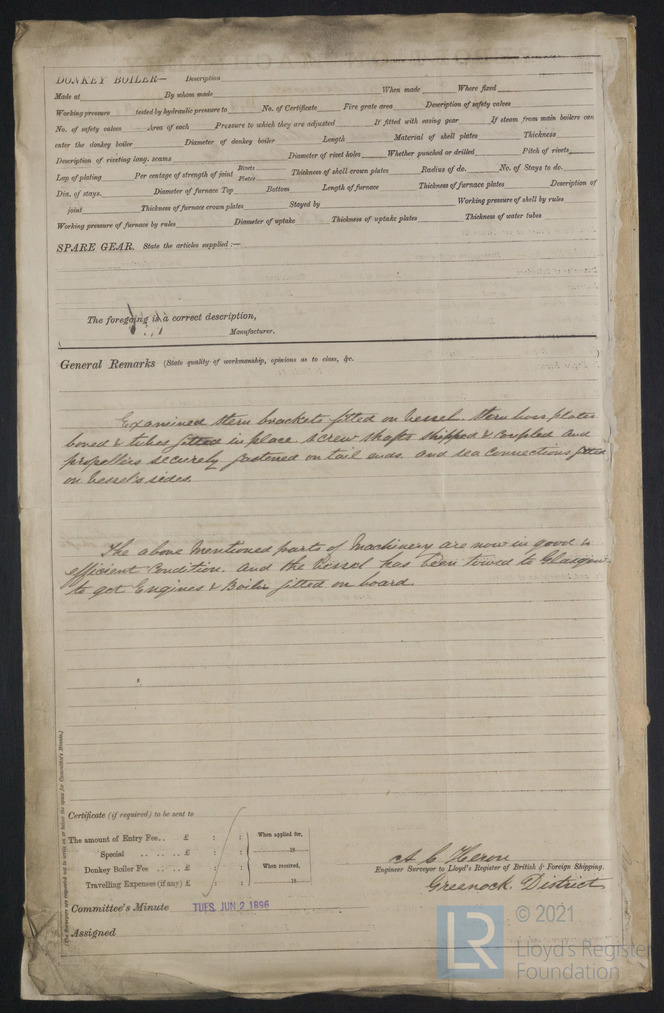 DONKEY BOILER— Description
Made at By whom made When made Where fixed
Working pressure tested by hydraulic pressure to No. of Certificate Fire grate area Description of safety valves
No. of safety valves Area of each Pressure to which they are adjusted If fitted with easing gear If steam from main boilers can
enter the donkey boiler Diameter of donkey boiler Length Material of shell plates Thickness
Description of riveting long. seams Diameter of rivet holes Whether punched or drilled Pitch of rivets
Lap of plating Per centage of strength of joint Rivets Plates Thickness of shell crown plates Radius of do. No. of Stays to do.
Dia. of stays. Diameter of furnace Top Bottom Length of furnace Thickness of furnace plates Description of
joint Thickness of furnace crown plates Stayed by Working pressure of shell by rules
Working pressure of furnace by rules Diameter of uptake Thickness of uptake plates Thickness of water tubes
SPARE GEAR. State the articles supplied :—
The foregoing is a correct description,
Manufacturer.
General Remarks (State quality of workmanship, opinions as to class, &c.
Examined stern brackets fitted on vessel. Stern boss plates
bored & tubes fitted in place. Screw shafts shipped & coupled and
propellers securely fastened on tail ends. and sea connections fitted
on vessel's sides.
The above mentioned parts of Machinery are now in good &
efficient condition. and the vessel has been towed to Glasgow
to get Engines & Boiler fitted on board.
Certificate (if required) to be sent to
The amount of Entry Fee.. £ : : When applied for,
Special .. .. .. £ : : 18
Donkey Boiler Fee .. .. £ : : When received,
Travelling Expenses (if any) £ : : 18
A C Heron
Engineer Surveyor to Lloyd's Register of British & Foreign Shipping.
Greenock District
Committee's Minute TUES. JUN 2 1896
Assigned
(The Surveyors are requested not to write on or below the space for Committee's Minute.)
LR © 2021
Lloyd's Register
Foundation